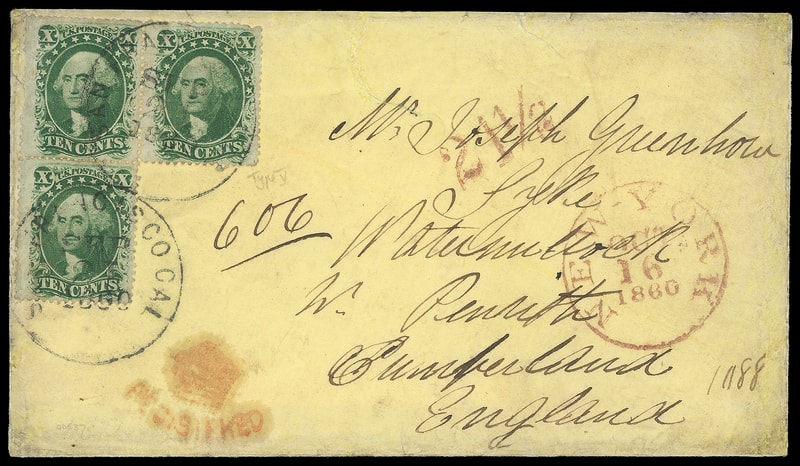 X U.S. POSTAGE X
TEN CENTS
X U.S. POSTAGE X
TEN CENTS
X U.S. POSTAGE X
TEN CENTS
SAN FRANCISCO CAL
1860
606
Mr. Joseph Greenhow
Lyke
Watermillock
Nr. Penrith
Cumberland
England
NEW-YORK
16
1860
REGISTERED
1188